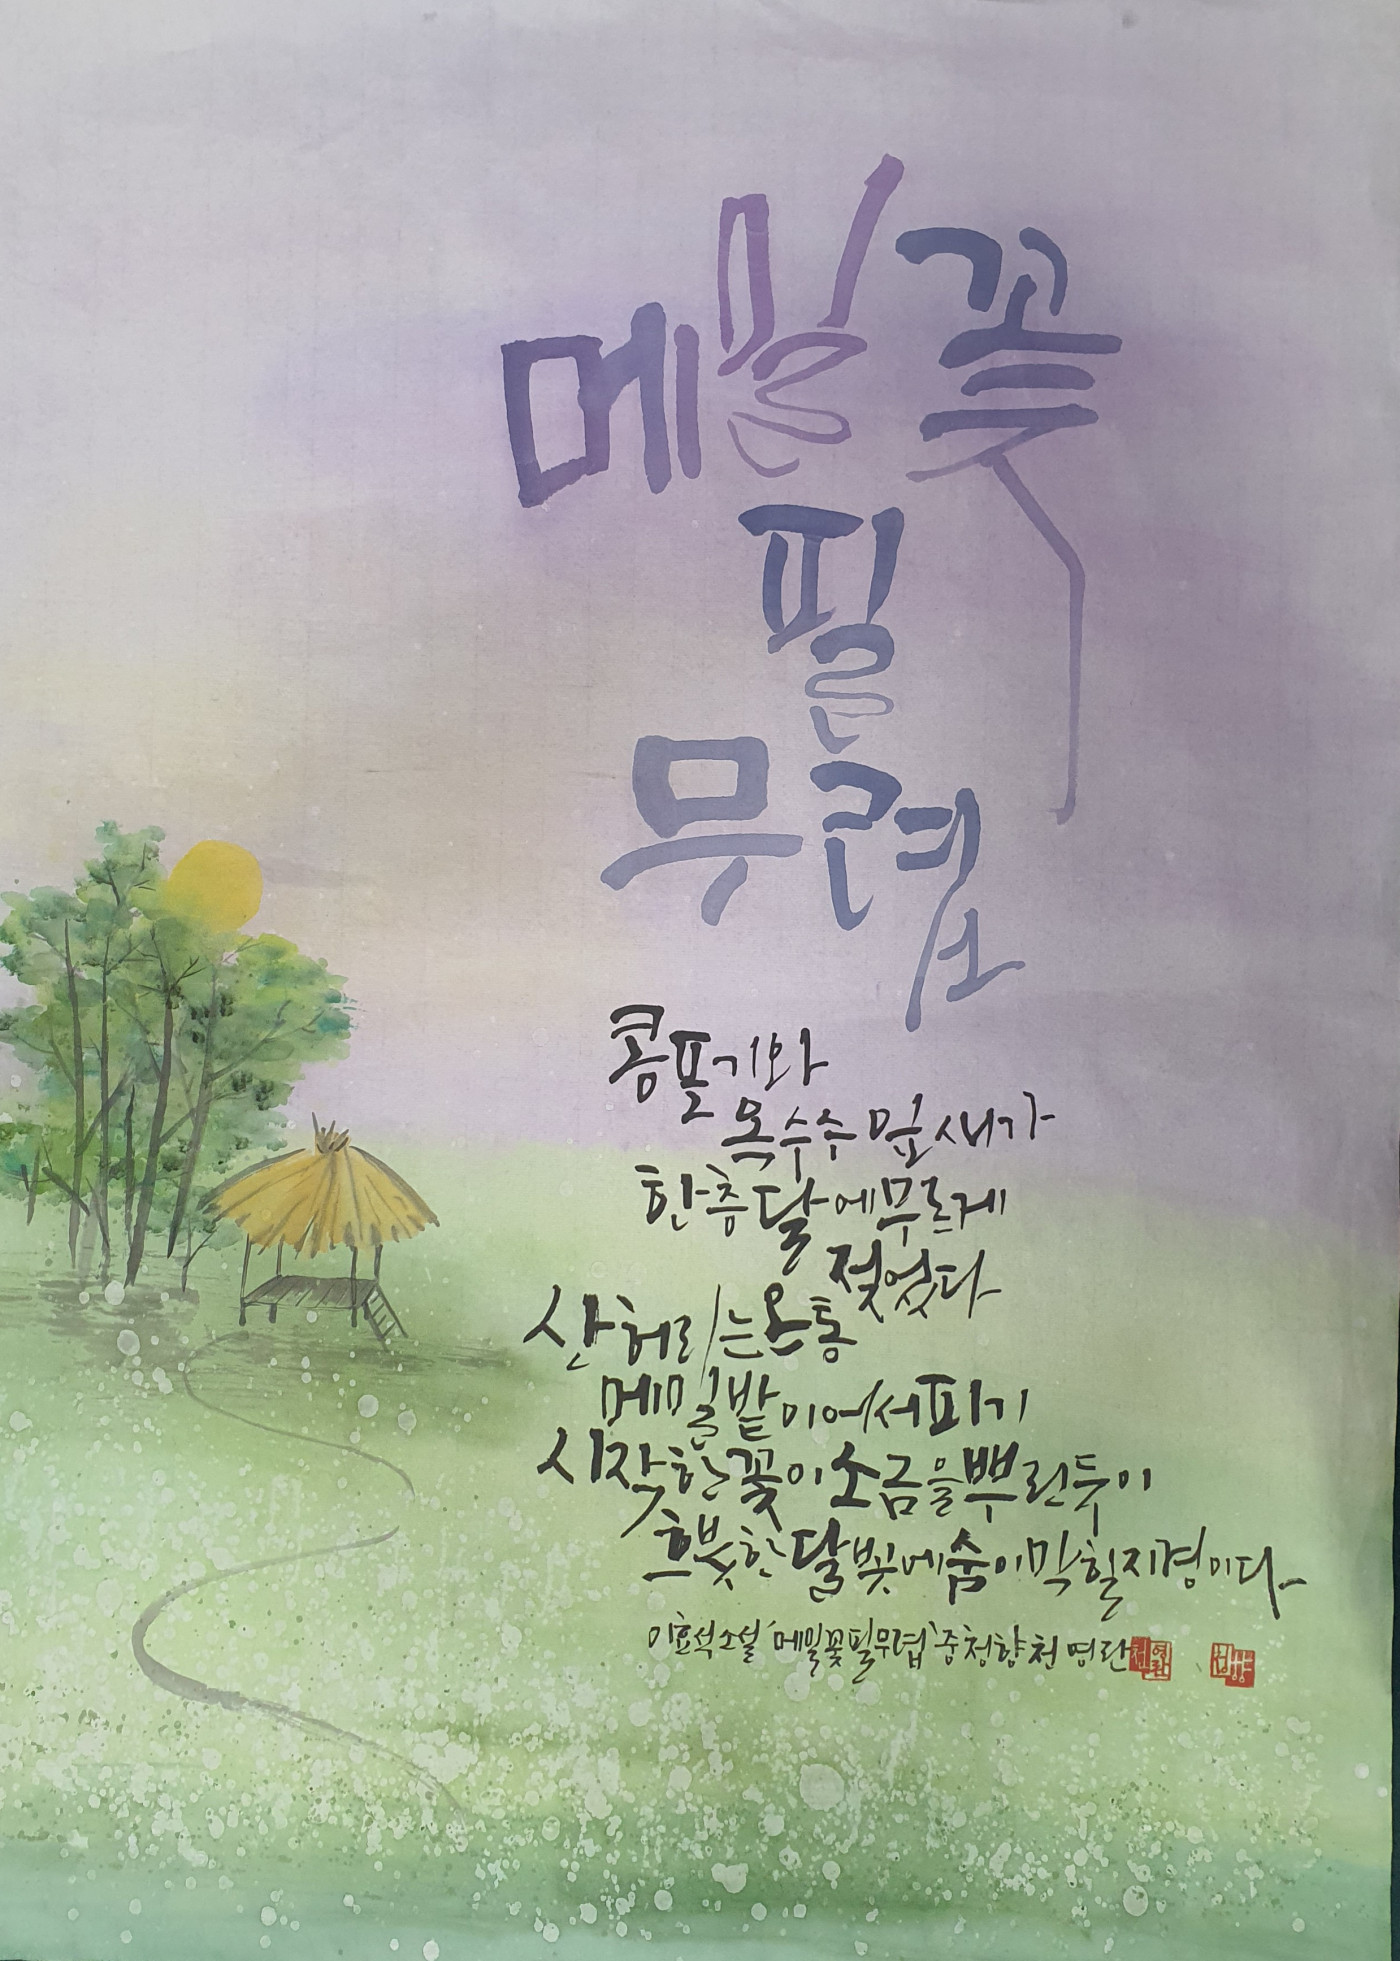 메밀꽃
필
무렵
콩포기와
옥수수 잎새가
한층 달에 푸르게
젖었다
산허리는 온통
메밀밭이어서 피기
시작한 꽃이 소금을 뿌린듯이
흐붓한 달빛에 숨이 막힐 지경이다
이효석 소설 '메밀꽃 필 무렵' 중 청향 천명란
천영란
청향